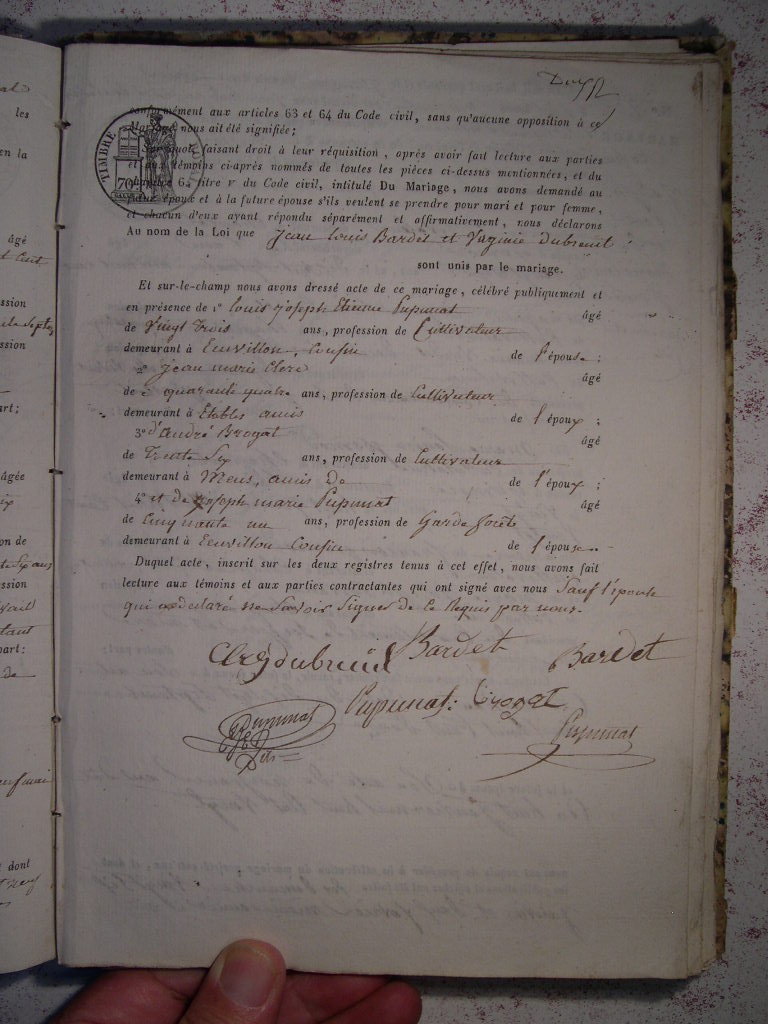 les
en la
âgé
ssion
ssion
art;
âgée
on de
part:
dont
TIMBRE
70
conformément aux articles 63 et 64 du Code civil, sans qu'aucune opposition à ce
Mariage nous ait été signifiée;
Sur quoi, faisant droit à leur réquisition, après avoir fait lecture aux parties
et aux témoins ci-après nommés de toutes les pièces ci-dessus mentionnées, et du
chapitre 6, titre v du Code civil, intitulé Du Mariage, nous avons demandé au
futur époux et à la future épouse s'ils veulent se prendre pour mari et pour femme,
et chacun d'eux ayant répondu séparément et affirmativement, nous déclarons
Au nom de la Loi que Jean Louis Bardet et Virginie Dubreuil
sont unis par le mariage.
Et sur-le-champ nous avons dressé acte de ce mariage, célébré publiquement et
en présence de 1° Louis Joseph Etienne Pupunat âgé
de Vingt Trois ans, profession de Cultivateur
demeurant à Cousin de l'épouse;
2° Jean marie Clerc âgé
de quarante quatre ans, profession de Cultivateur
demeurant à Etables amis de l'époux;
3° d'André Brogat âgé
de Trente Six ans, profession de Cultivateur
demeurant à amis de de l'époux;
4° et de Joseph marie Pupunat âgé
de Cinquante un ans, profession de Garde forêts
demeurant à Cousin de l'épouse
Duquel acte, inscrit sur les deux registres tenus à cet effet, nous avons fait
lecture aux témoins et aux parties contractantes qui ont signé avec nous Sauf l'épouse
qui a déclaré ne Savoir Signer de ce Requis par nous.
Clerc dubreuil Bardet Bardet
Pupunat Brogat
Pupunat
Pupunat